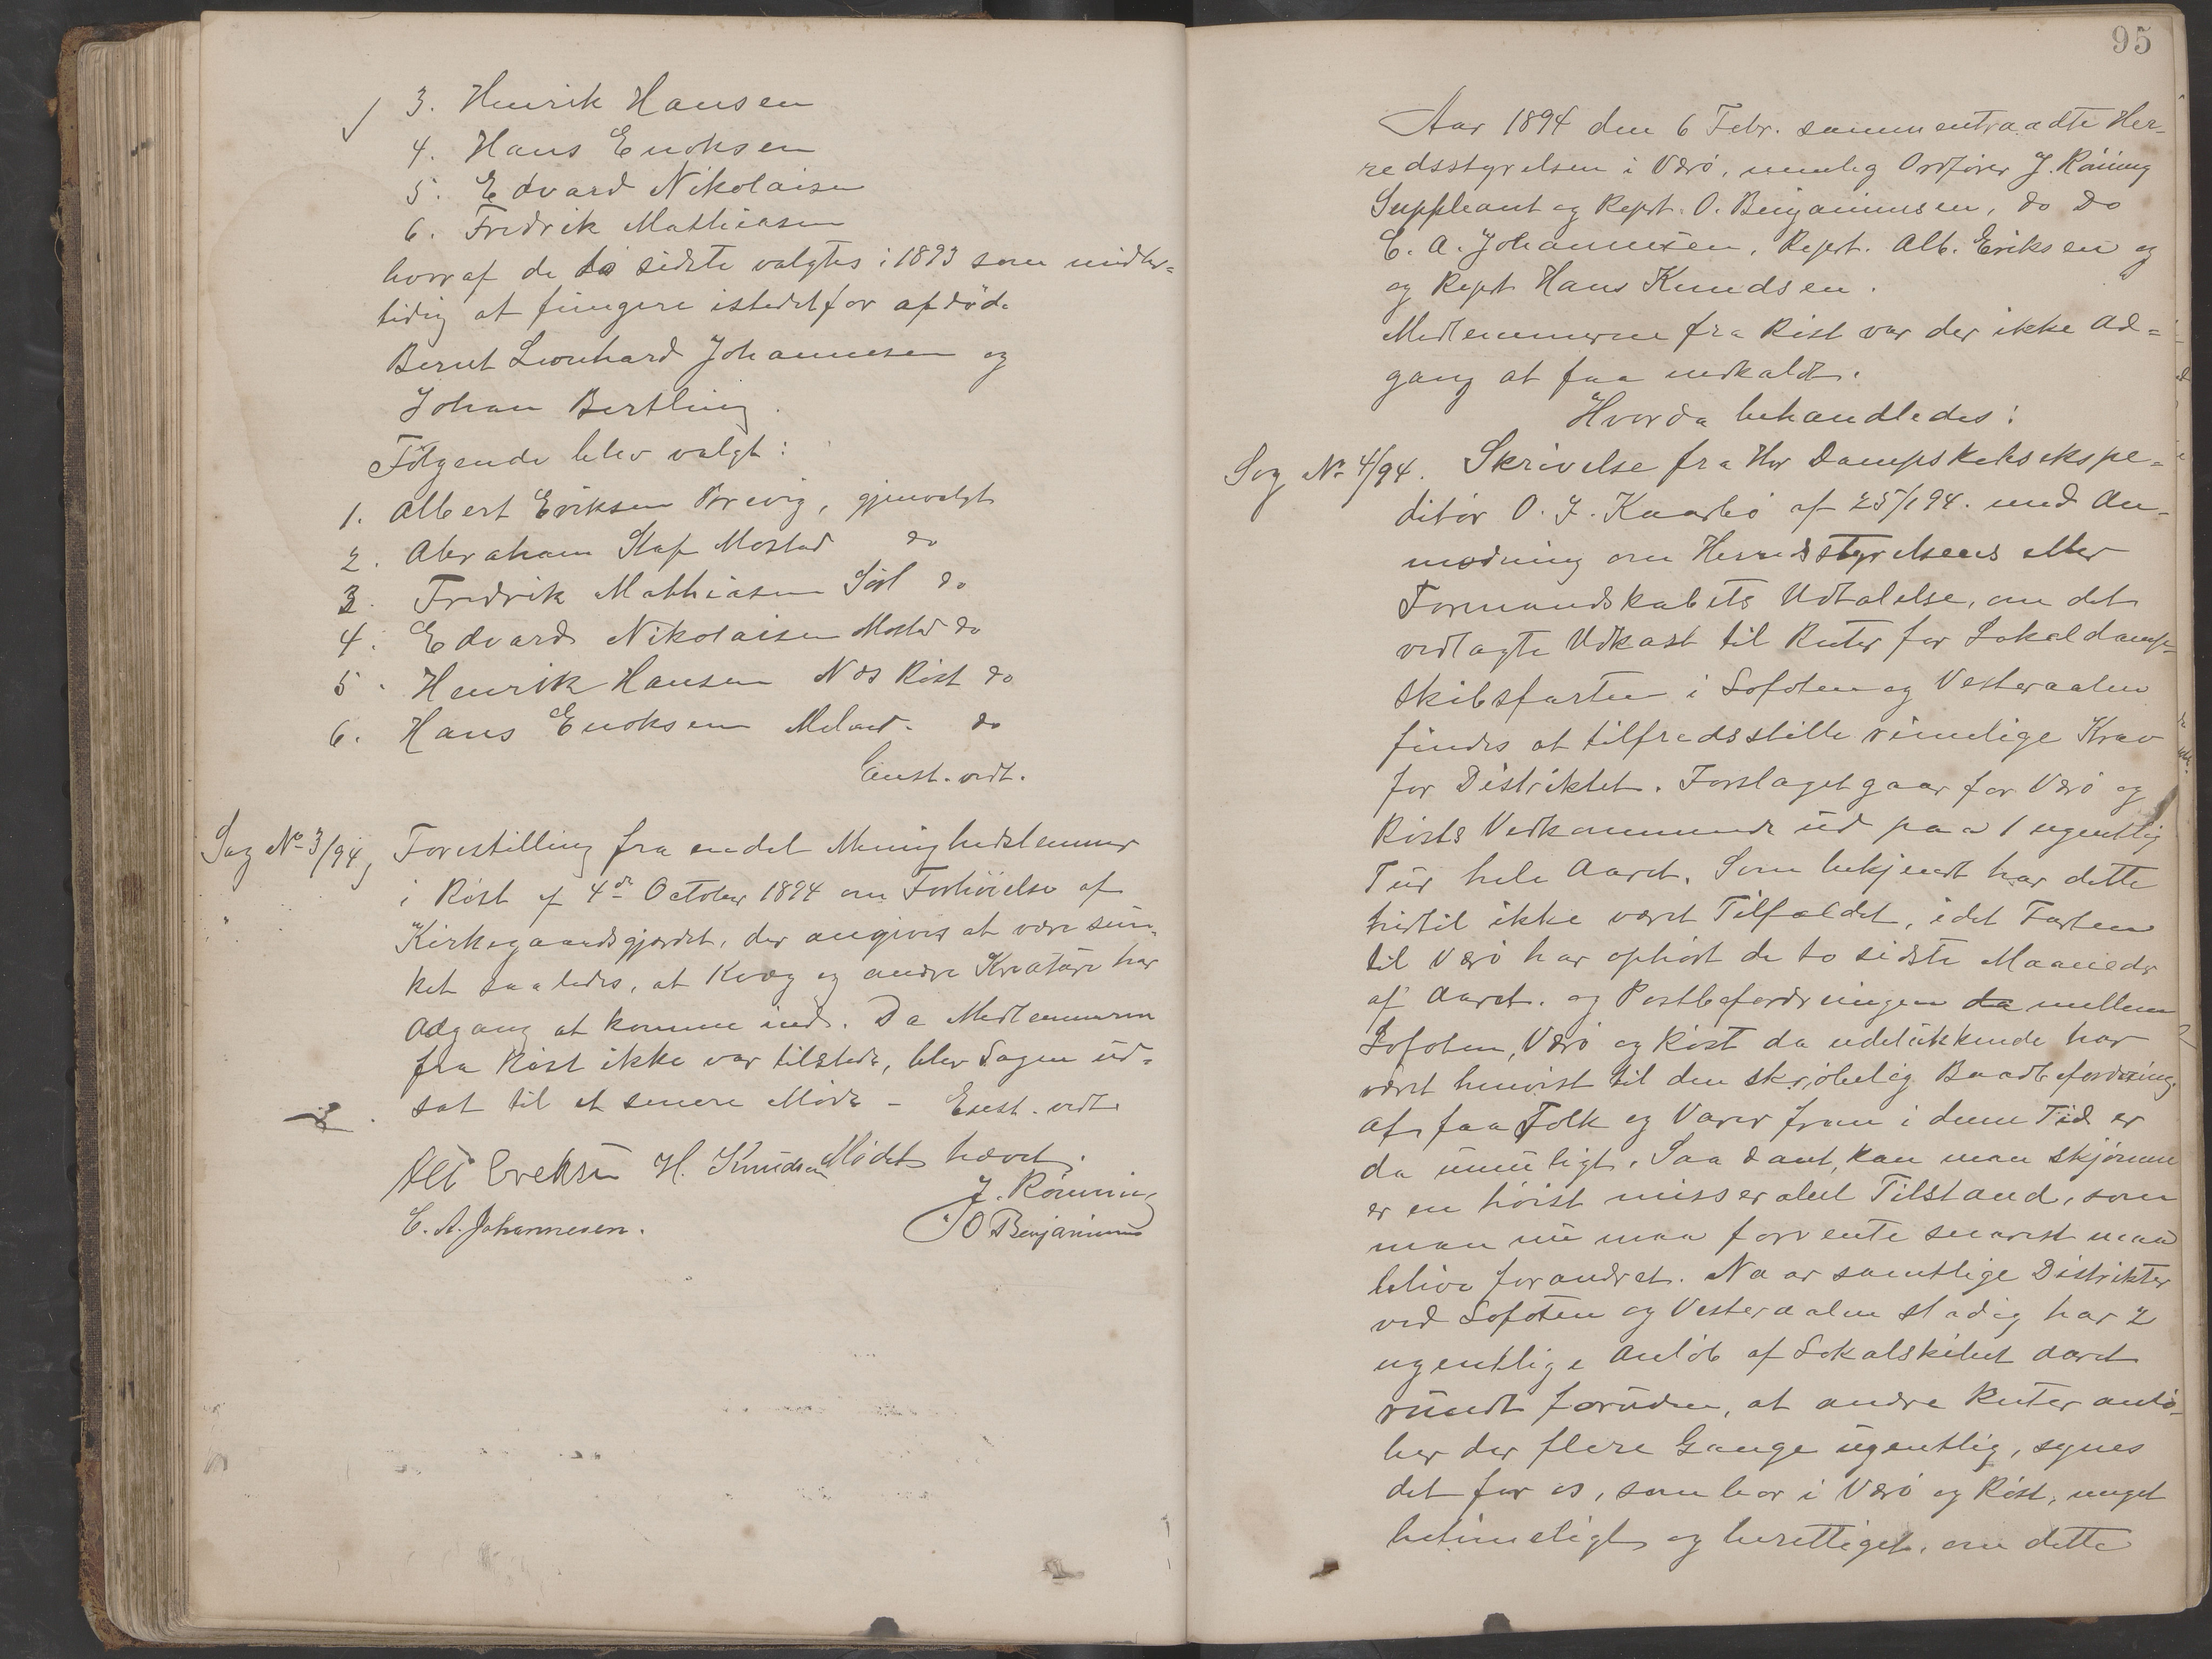 3. Henrik Hansen
4. Hans Enoksen
5. Edvard Nikolaisen
6. Fredrik Mathiasen
hvoraf de to sidste valgtes i 1893 som midler=
tidig at fungere istedetfor afdøde
Bernt Leonhard Johannesen og
Johan Bertling.
Følgende blev valgt:
1. Albert Eriksen Brevig, gjenvalgt
2. Abraham Staf Mostad do
3. Fredrik Mathiasen Sørl do
4. Edvard Nikolaisen Mostad do
5. Henrik Hansen Næs Røst do
6. Hans Enoksen do
Enst. vedt.
Sag No 3/94, Forestilling fra endel Menighedslemmer
i Røst af 4de October 1894 om Forhøielse af
Kirkegaardsgjærdet, der angives at være sun-
ket saaledes, at Kvæg og andre Kreature har
Adgang at komme ind. Da Medlemmerne
fra Røst ikke var tilstede, blev Sagen ud=
sat til et senere Møde - Enst. vedt.
Mødet hævet.
Alb Ereksen H. Knudsen J. Rønning
C. A. Johannesen. O Benjaminsen
95
Aar 1894 den 6 Febr. sammentraadte Her=
redsstyrelsen i Værø, nemlig Ordfører J. Rønning
Suppleant og Repr. O. Benjaminsen, do do
C. A. Johannesen, Repr. Alb. Eriksen og
og Repr Hans Knudsen.
Medlemmerne fra Røst var der ikke Ad=
gang at faa indkaldt.
Hvorda behandledes:
Sag No 4/94. Skrivelse fra Hr Dampskibsekspe=
ditør O. J. Kaarbø af 25/1 94. med An-
modning om Herredsstyrelsens eller
Formandskabets Udtalelse, om det
vedlagte Udkast til Ruter for Lokaldamp=
skibsfarten i Lofoten og Vesteraalen
findes at tilfredsstille rimelige Krav
for Distriktet. Forslaget gaar for Værø og
Røsts Vedkommende ud paa 1 ugentlig
Tur hele Aaret. Som bekjendt har dette
hidtil ikke været Tilfældet, idet Farten
til Værø har ophørt de to sidste Maaneder
af Aaret. og Postbefordringen da mellem
Lofoten, Værø og Røst da udelukkende har
været henvist til den skrøbelig Baadbefordring.
At faa Folk og Varer frem i denne Tid er
da umuligt. Saadant, kan man skjønne
er en høist misserabel Tilstand, som
man nu maa forvente snarest maa
blive forandret. Naar samtlige Distrikter
ved Lofoten og Vesteraalen stadig har 2
ugentlige Anløb af Lokalskibet Aaret
rundt foruden, at andre Ruter anlø-
ber der flere Gange ugentlig, synes
det for os, som bor i Værø og Røst, meget
betimeligt og berettiget, om dette